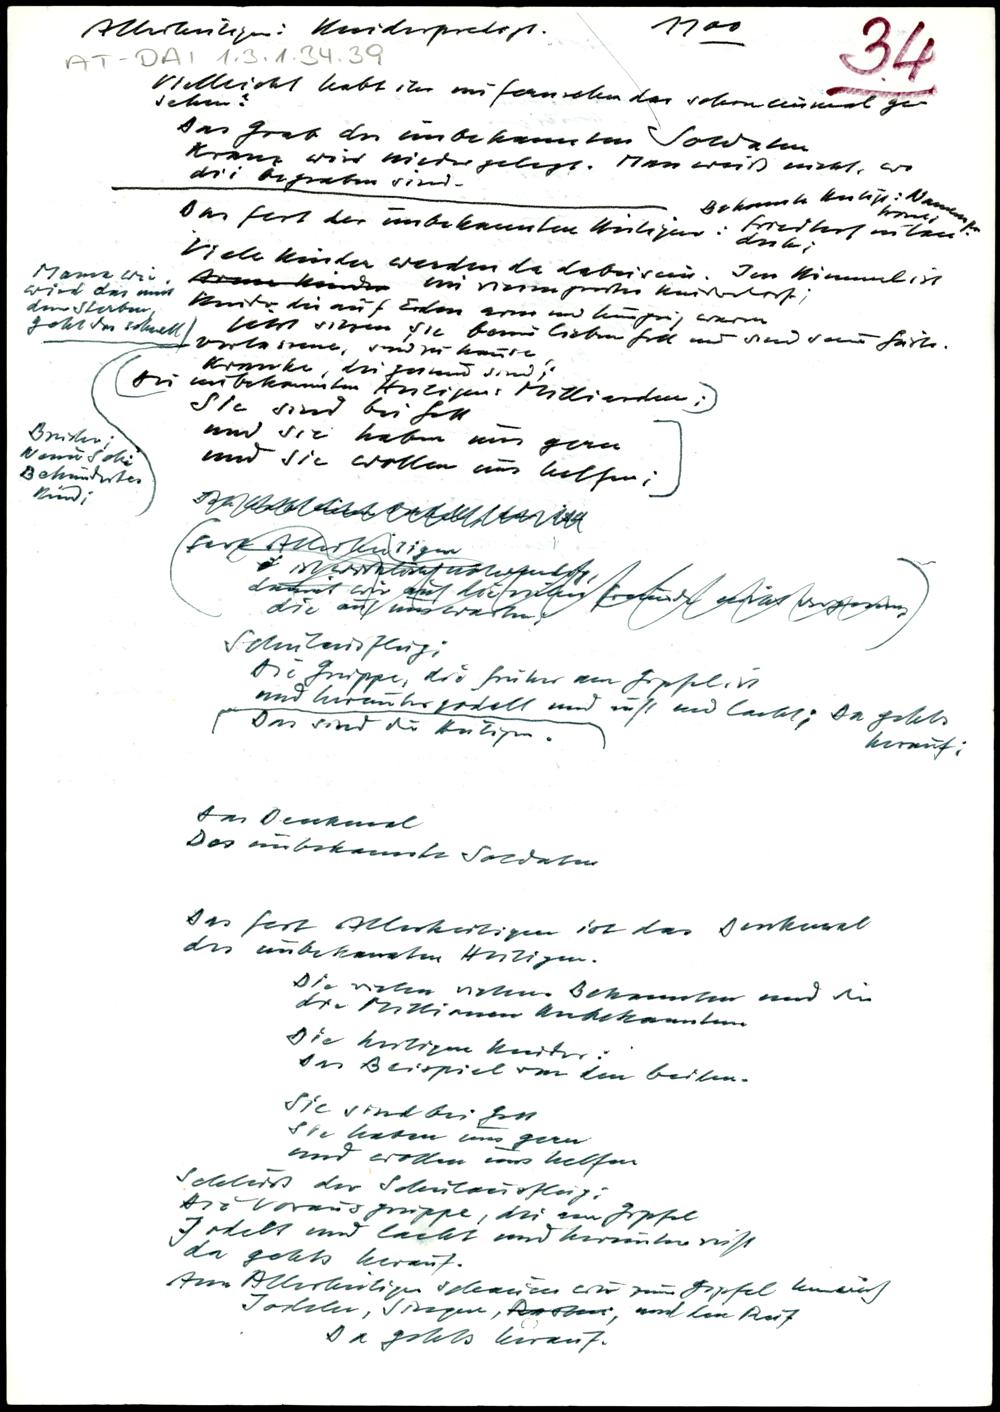 Allerheiligen: Kinderpredigt. 11 00
34
AT-DAI 1.3.1.34.39
Vielleicht habt ihr im Fernsehen das schon einmal ge-
sehen:
Das Grab des unbekannten Soldaten
Kranz wird niedergelegt. Man weiß nicht, wo
die begraben sind.
Bekannte Heilige: Namens
Das Fest der unbekannten Heiligen: Friedhof
Viele Kinder werden da dabeisein. Im Himmel ist
Arme Kinder ein riesengroßes Kinderdorf;
Kinder die auf Erden arm und hungrig waren
Jetzt sitzen sie beim lieben Gott und sind seine Gäste.
verlassene, sind zu hause,
Kranke, die gesund sind;
Mama wie
wird das mit
dem Sterben,
geht das schnell
(Die unbekannten Heiligen: Milliarden;)
Sie sind bei Gott
und sie haben uns gern
und sie wollen uns helfen;
Bruder;
Behindertes
Kind;
Fest Allerheiligen
damit wir auf die vielen Freunde nicht vergessen,
die auf uns warten;
Schulausflug:
Die Gruppe, die früher am Gipfel ist
und herunterjodelt und ruft und lacht; Da gehts
herauf;
Das sind die Heiligen.
Das Denkmal
Des unbekannte Soldaten
Das Fest Allerheiligen ist das Denkmal
des unbekannten Heiligen.
Die vielen vielen Bekannten und die
die Millionen Unbekannten
Die heiligen Kinder:
Das Beispiel von den beiden.
Sie sind bei Gott
Sie haben uns gern
und wollen uns helfen
Schluß der Schulausflug:
Die Vorausgruppe, die am Gipfel
Jodelt und lacht und herunter ruft
da gehts herauf.
Am Allerheiligen schauen wir zum Gipfel hinauf
Jodeln, Singen, und den Ruf
Da gehts herauf.